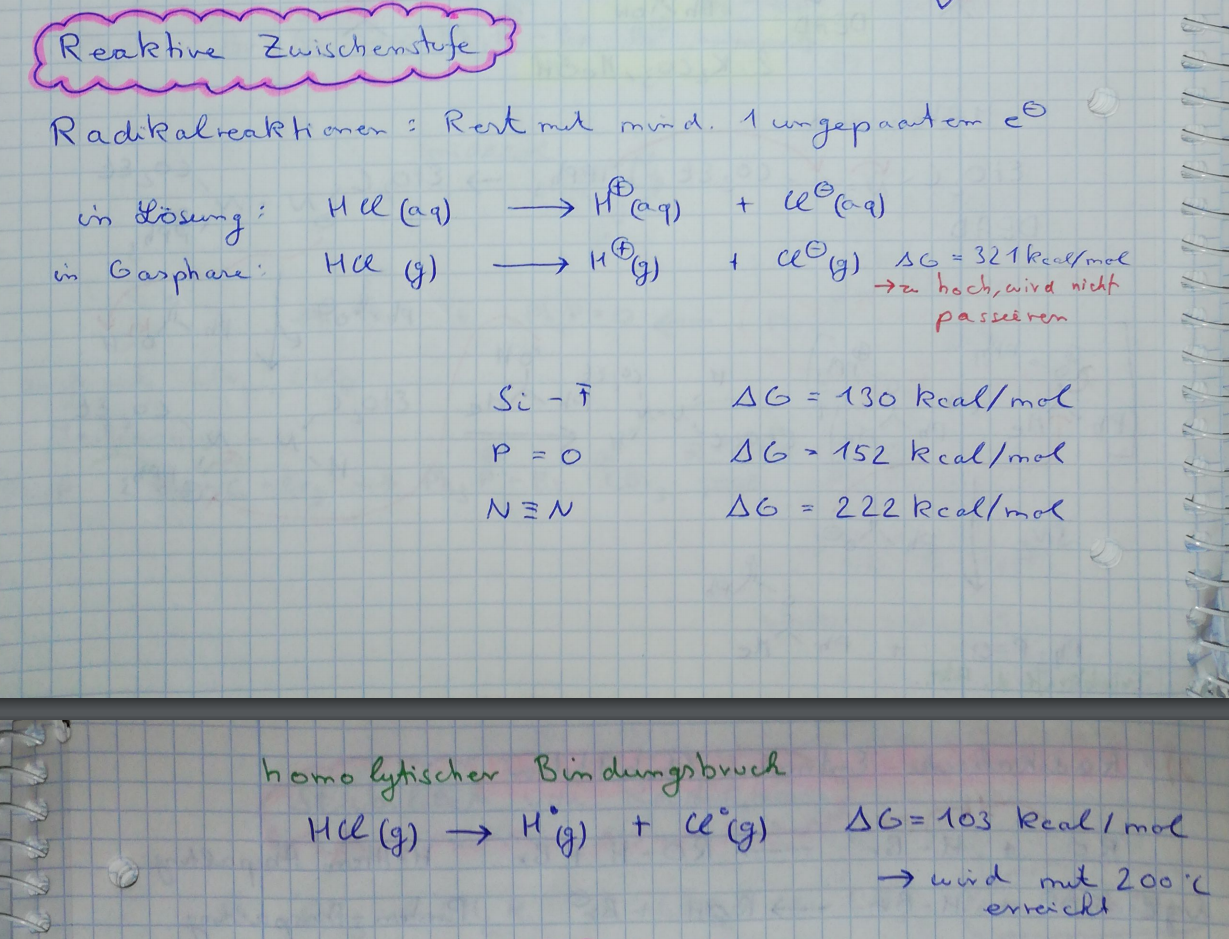 Reaktive Zwischenstufe
Radikalreaktionen : Rest mit mind. 1 ungepaartem e⊖
in Lösung: HCl (aq) → H⊕(aq) + Cl⊖(aq)
in Gasphase: HCl (g) → H⊕(g) + Cl⊖(g) ΔG = 321 kcal/mol
→ zu hoch, wird nicht
passieren
Si - F ΔG = 130 kcal/mol
P = O ΔG = 152 kcal/mol
N ≡ N ΔG = 222 kcal/mol
homolytischer Bindungsbruch
HCl (g) → H•(g) + Cl•(g) ΔG = 103 kcal/mol
→ wird mit 200°C
erreicht